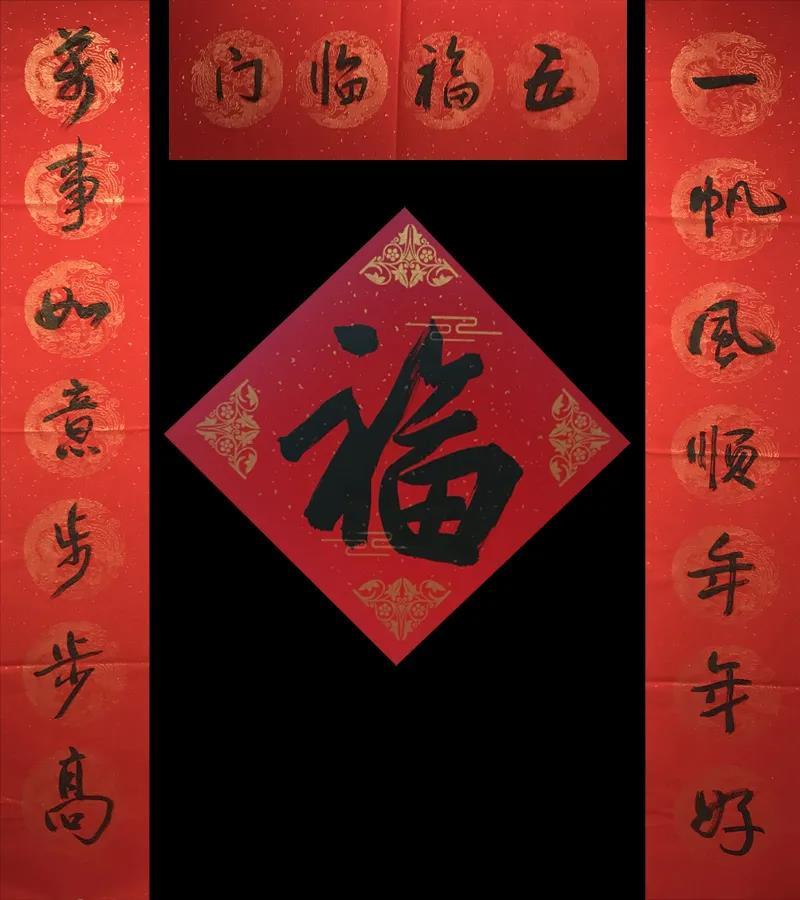 五福临门
一帆風顺年年好
萬事如意步步高
福